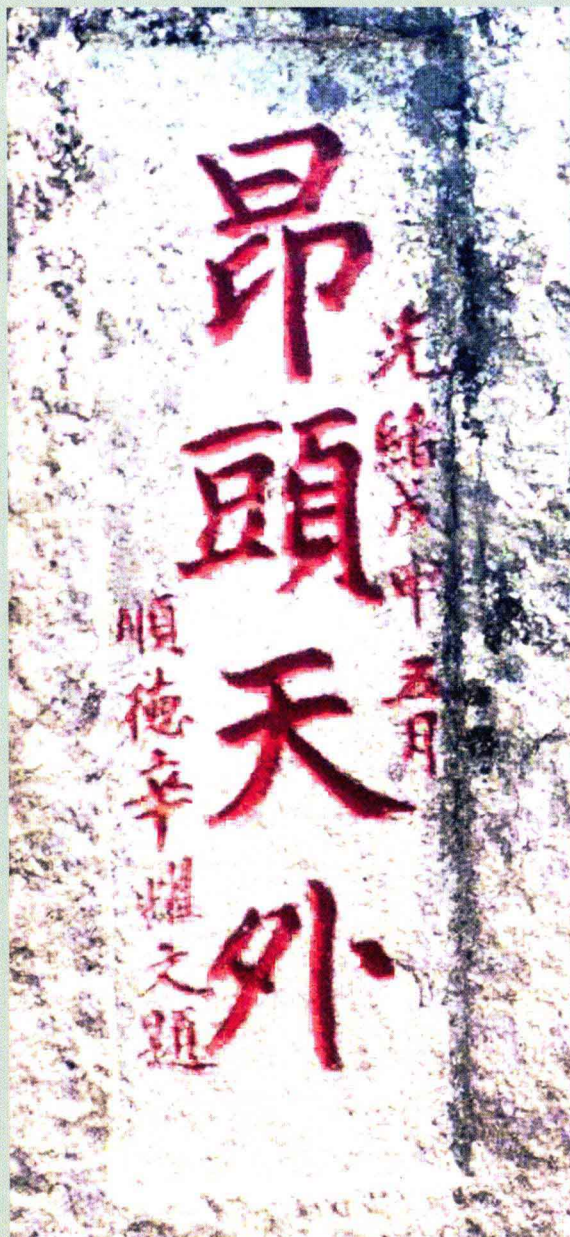 光緒戊申五月
昂頭天外
順德辛耀文題